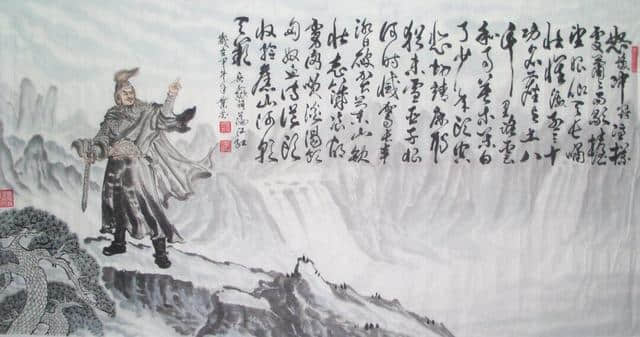 怒髮冲冠憑欄
處瀟瀟雨歇抬
望眼仰天長嘯
壯懷激烈三十
功名塵與土八
千里路雲
和月莫等閑白
了少年頭空
悲切靖康恥
猶未雪臣子恨
何時滅駕長車
踏破賀蘭山缺
壯志飢餐胡
虜肉笑談渴飲
匈奴血待從頭
收拾舊山河朝
天闕 岳飛詞滿江紅
歲在甲午年